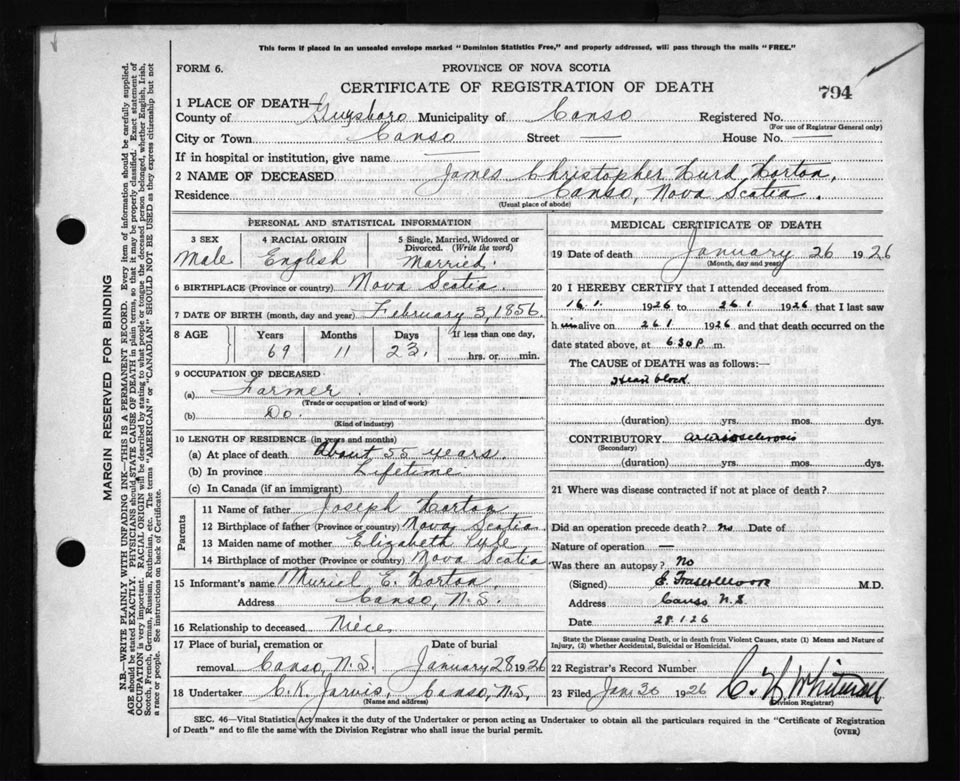 This form if placed in an unsealed envelope marked "Dominion Statistics Free," and properly addressed, will pass through the mails "FREE."
FORM 6.
PROVINCE OF NOVA SCOTIA
CERTIFICATE OF REGISTRATION OF DEATH
794
1 PLACE OF DEATH
County of Guysboro Municipality of Canso Registered No.
(For use of Registrar General only)
City or Town Canso Street — House No. —
If in hospital or institution, give name —
2 NAME OF DECEASED James Christopher Hurd Horton.
Residence Canso, Nova Scotia.
(Usual place of abode)
MARGIN RESERVED FOR BINDING
N.B.—WRITE PLAINLY WITH UNFADING INK—THIS IS A PERMANENT RECORD. Every item of information should be carefully supplied.
AGE should be stated EXACTLY. PHYSICIANS should STATE CAUSE OF DEATH in plain terms, so that it may be properly classified. Exact statement of
OCCUPATION is very important. RACIAL ORIGIN will be described by stating to what people or tongue the deceased person belonged, whether English, Irish,
Scotch, French, German, Russian, Ruthenian, etc. The terms "AMERICAN" or "CANADIAN" SHOULD NOT BE USED as they express citizenship but not
a race or people. See instructions on back of Certificate.
PERSONAL AND STATISTICAL INFORMATION
3 SEX
Male
4 RACIAL ORIGIN
English
5 Single, Married, Widowed or
Divorced. (Write the word)
Married.
6 BIRTHPLACE (Province or country) Nova Scotia.
7 DATE OF BIRTH (month, day and year) February 3, 1856.
8 AGE Years Months Days If less than one day,
69 11 23. hrs. or min.
9 OCCUPATION OF DECEASED
(a) Farmer
(Trade or occupation or kind of work)
(b) Do.
(Kind of industry)
10 LENGTH OF RESIDENCE (in years and months)
(a) At place of death About 55 years
(b) In province Lifetime
(c) In Canada (if an immigrant)
Parents
11 Name of father Joseph Horton
12 Birthplace of father (Province or country) Nova Scotia
13 Maiden name of mother Elizabeth
14 Birthplace of mother (Province or country) Nova Scotia
15 Informant's name Muriel E. Horton.
Address Canso, N.S.
16 Relationship to deceased Niece.
17 Place of burial, cremation or Date of burial
removal Canso, N.S. January 28 1926
18 Undertaker C. K. Jarvis, Canso, N.S.
(Name and address)
MEDICAL CERTIFICATE OF DEATH
19 Date of death January 26 1926
(Month, day and year)
20 I HEREBY CERTIFY that I attended deceased from
16.1. 1926 to 26.1 1926 that I last saw
h im alive on 26.1 1926 and that death occurred on the
date stated above, at 6.30 P. m.
The CAUSE of DEATH was as follows:—
Heart block
(duration) yrs. mos. dys.
CONTRIBUTORY arteriosclerosis
(Secondary)
(duration) yrs. mos. dys.
21 Where was disease contracted if not at place of death?
Did an operation precede death? no Date of
Nature of operation —
Was there an autopsy? No
(Signed) M.D.
Address Canso N.S
Date 28.1.26
State the Disease causing Death, or in death from Violent Causes, state (1) Means and Nature of
Injury, (2) whether Accidental, Suicidal or Homicidal.
22 Registrar's Record Number
23 Filed Jan 30 1926
(Division Registrar)
SEC. 46—Vital Statistics Act makes it the duty of the Undertaker or person acting as Undertaker to obtain all the particulars required in the "Certificate of Registration
of Death" and to file the same with the Division Registrar who shall issue the burial permit.
(OVER)